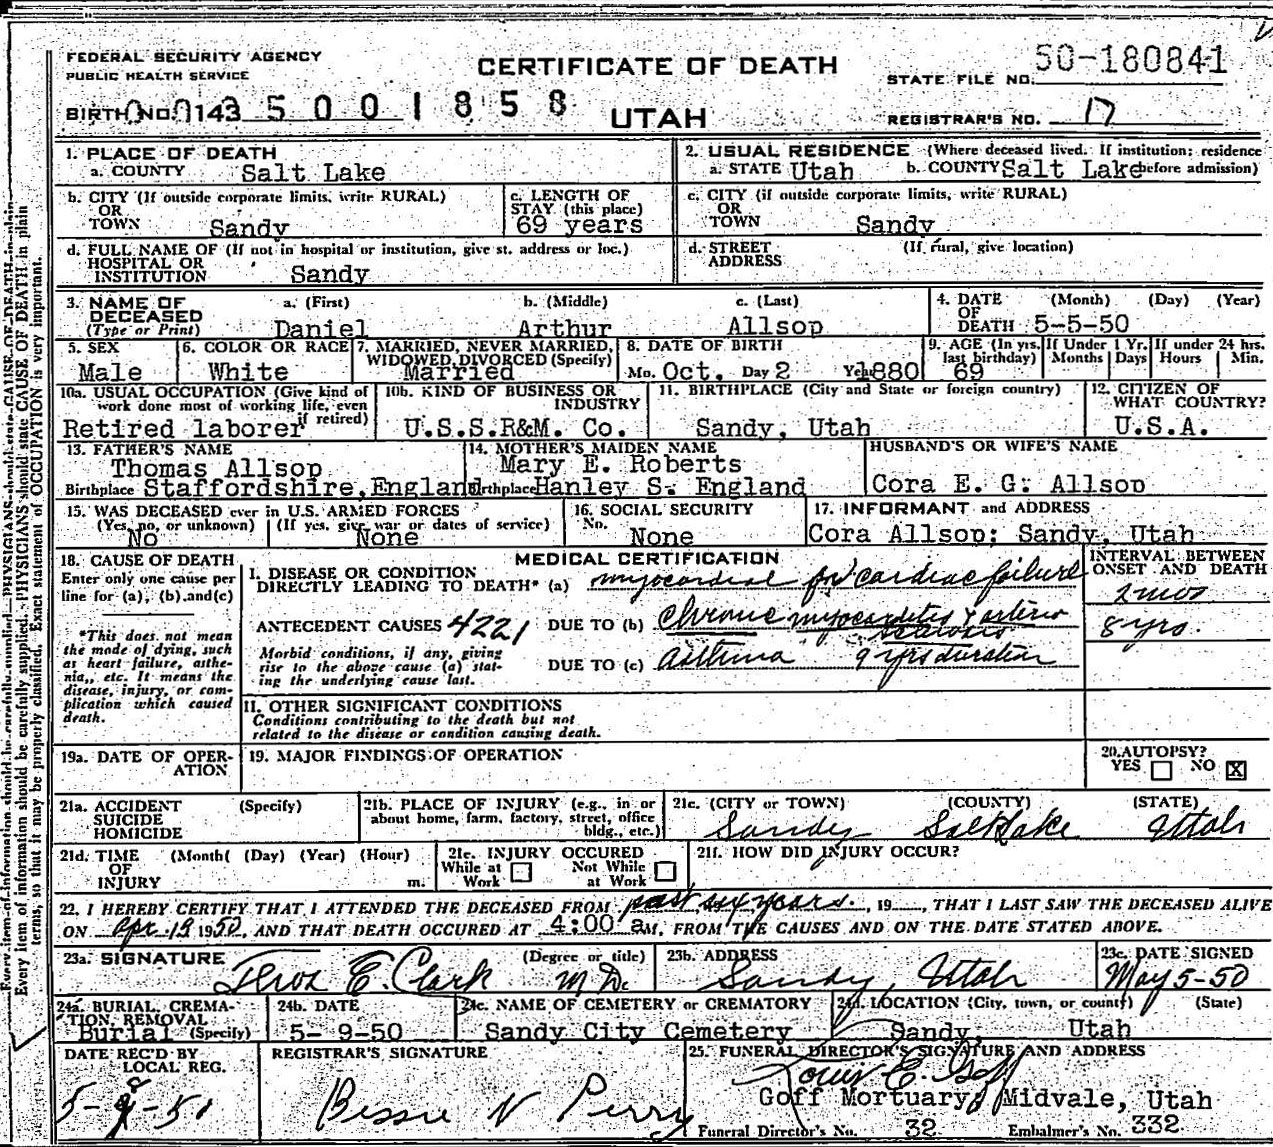 FEDERAL SECURITY AGENCY
PUBLIC HEALTH SERVICE
CERTIFICATE OF DEATH
STATE FILE NO. 50-180841
BIRTH NO. 0143 5001858
UTAH
REGISTRAR'S NO. 17
1. PLACE OF DEATH
a. COUNTY Salt Lake
2. USUAL RESIDENCE (Where deceased lived. If institution: residence before admission)
a. STATE Utah b. COUNTY Salt Lake
b. CITY (If outside corporate limits, write RURAL)
OR
TOWN Sandy
c. LENGTH OF
STAY (this place)
69 years
c. CITY (if outside corporate limits, write RURAL)
OR
TOWN Sandy
d. FULL NAME OF (If not in hospital or institution, give st. address or loc.)
HOSPITAL OR
INSTITUTION Sandy
d. STREET (If rural, give location)
ADDRESS
3. NAME OF a. (First) b. (Middle) c. (Last)
DECEASED
(Type or Print) Daniel Arthur Allsop
4. DATE (Month) (Day) (Year)
OF
DEATH 5-5-50
5. SEX
Male
6. COLOR OR RACE
White
7. MARRIED, NEVER MARRIED,
WIDOWED, DIVORCED (Specify)
Married
8. DATE OF BIRTH
Mo. Oct. Day 2 Yr. 1880
9. AGE (In yrs. last birthday)
69
If Under 1 Yr.
Months Days
If under 24 hrs.
Hours Min.
10a. USUAL OCCUPATION (Give kind of
work done most of working life, even
if retired)
Retired laborer
10b. KIND OF BUSINESS OR
INDUSTRY
U.S.S.R&M. Co.
11. BIRTHPLACE (City and State or foreign country)
Sandy, Utah
12. CITIZEN OF
WHAT COUNTRY?
U.S.A.
13. FATHER'S NAME
Thomas Allsop
Birthplace Staffordshire, England
14. MOTHER'S MAIDEN NAME
Mary E. Roberts
Birthplace Hanley S. England
HUSBAND'S OR WIFE'S NAME
Cora E. G. Allsop
15. WAS DECEASED ever in U.S. ARMED FORCES
(Yes, no, or unknown) (If yes, give war or dates of service)
No None
16. SOCIAL SECURITY
No. None
17. INFORMANT and ADDRESS
Cora Allsop; Sandy, Utah
18. CAUSE OF DEATH
Enter only one cause per
line for (a), (b), and (c)
*This does not mean
the mode of dying, such
as heart failure, asthe-
nia, etc. It means the
disease, injury, or com-
plication which caused
death.
MEDICAL CERTIFICATION
INTERVAL BETWEEN
ONSET AND DEATH
I. DISEASE OR CONDITION
DIRECTLY LEADING TO DEATH* (a) myocardial or cardiac failure 2 mos
ANTECEDENT CAUSES 4221 DUE TO (b) Chronic myocarditis & arterio
sclerosis 8 yrs.
Morbid conditions, if any, giving
rise to the above cause (a) stat-
ing the underlying cause last.
DUE TO (c) Asthma 9 yrs duration
II. OTHER SIGNIFICANT CONDITIONS
Conditions contributing to the death but not
related to the disease or condition causing death.
19a. DATE OF OPER-
ATION
19. MAJOR FINDINGS OF OPERATION
20. AUTOPSY?
YES NO X
21a. ACCIDENT (Specify)
SUICIDE
HOMICIDE
21b. PLACE OF INJURY (e.g., in or
about home, farm, factory, street, office
bldg., etc.)
21c. (CITY or TOWN) (COUNTY) (STATE)
Sandy Salt Lake Utah
21d. TIME (Month( (Day) (Year) (Hour)
OF
INJURY m.
21e. INJURY OCCURED
While at Not While
Work at Work
21f. HOW DID INJURY OCCUR?
22. I HEREBY CERTIFY THAT I ATTENDED THE DECEASED FROM past six years, 19__, THAT I LAST SAW THE DECEASED ALIVE
ON Apr. 19 1950, AND THAT DEATH OCCURED AT 4:00 a M, FROM THE CAUSES AND ON THE DATE STATED ABOVE.
23a. SIGNATURE (Degree or title)
E. Clark M.D.
23b. ADDRESS
Sandy, Utah
23c. DATE SIGNED
May 5-50
24a. BURIAL, CREMA-
TION, REMOVAL
Burial (Specify)
24b. DATE
5-9-50
24c. NAME OF CEMETERY or CREMATORY
Sandy City Cemetery
24d. LOCATION (City, town, or county) (State)
Sandy, Utah
DATE REC'D BY
LOCAL REG.
REGISTRAR'S SIGNATURE
Bessie N Perry
25. FUNERAL DIRECTOR'S SIGNATURE AND ADDRESS
Louis E. Goff
Goff Mortuary, Midvale, Utah
Funeral Director's No. 32 Embalmer's No. 332
Every item of information should be carefully supplied. PHYSICIANS should state CAUSE OF DEATH in plain
terms, so that it may be properly classified. Exact statement of OCCUPATION is very important.